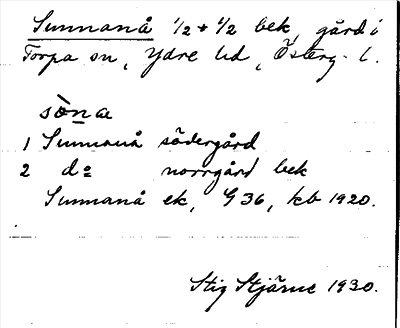 Sunnanå 1/2 + 1/2 bek, gård i
Torpa sn, Ydre hd, Österg. l.
sònæ
1 Sunnanå södergård
2 do norrgård bek
Sunnanå ek, G 36, kb 1920.
Stig Stjärne 1930.